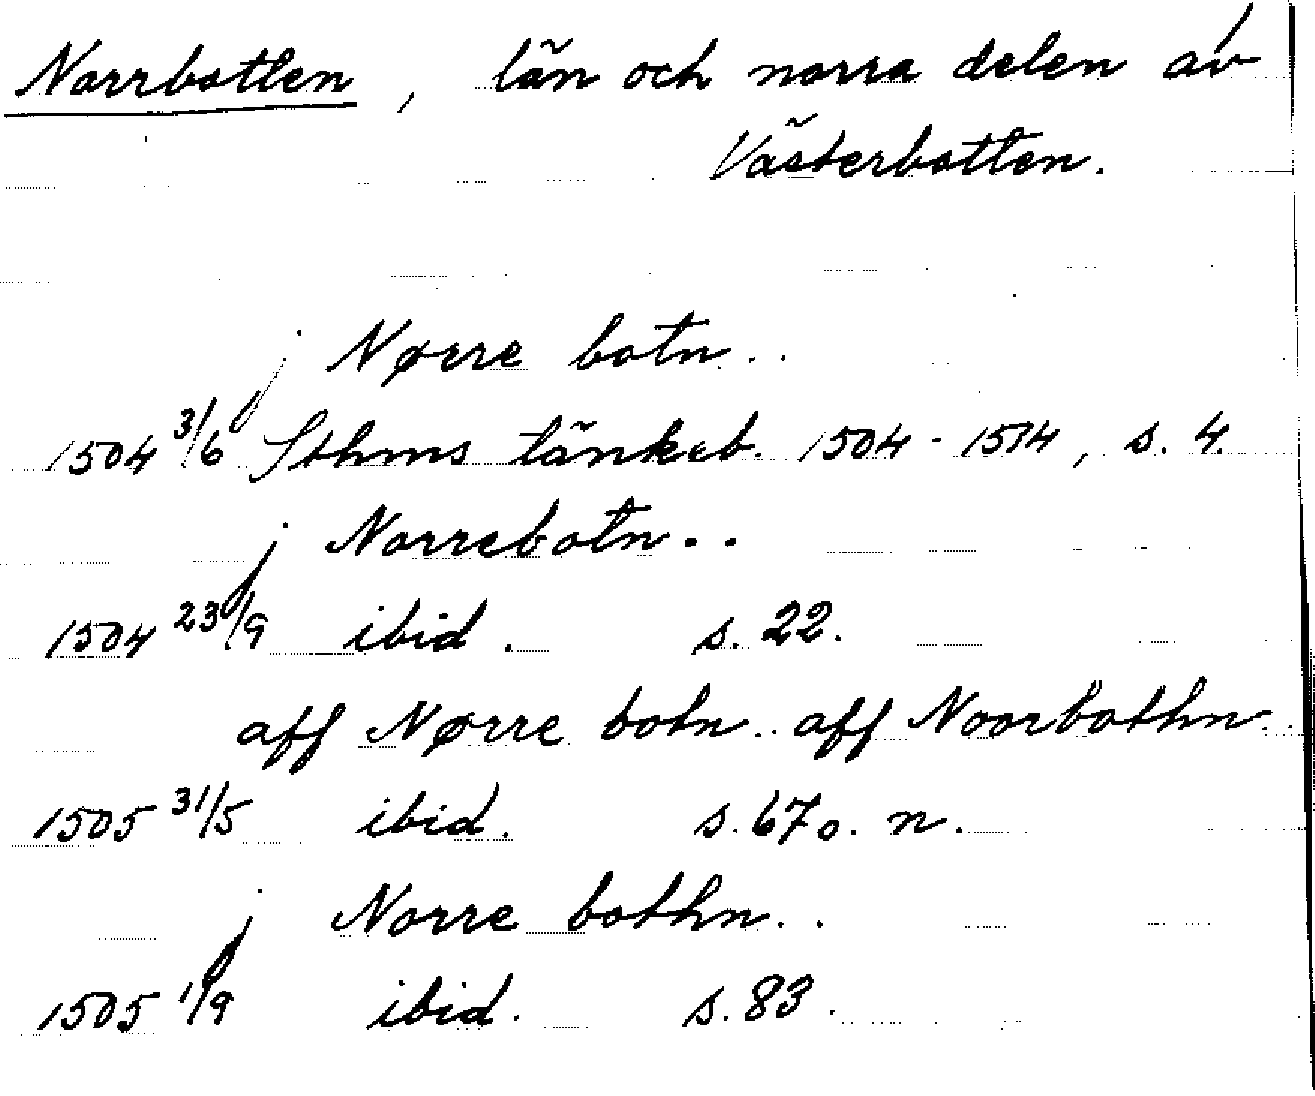 Norrbotten, län och norra delen av
Västerbotten.
j Nørre botn..
1504 3/6 Sthms tänkeb. 1504-1514, s. 4.
j Norrebotn..
1504 23/9 ibid. s. 22.
aff Nørre botn.. aff Noorbothn.
1505 31/5 ibid. s. 67 o. n.
j Norre bothn..
1505 1/9 ibid. s. 83.